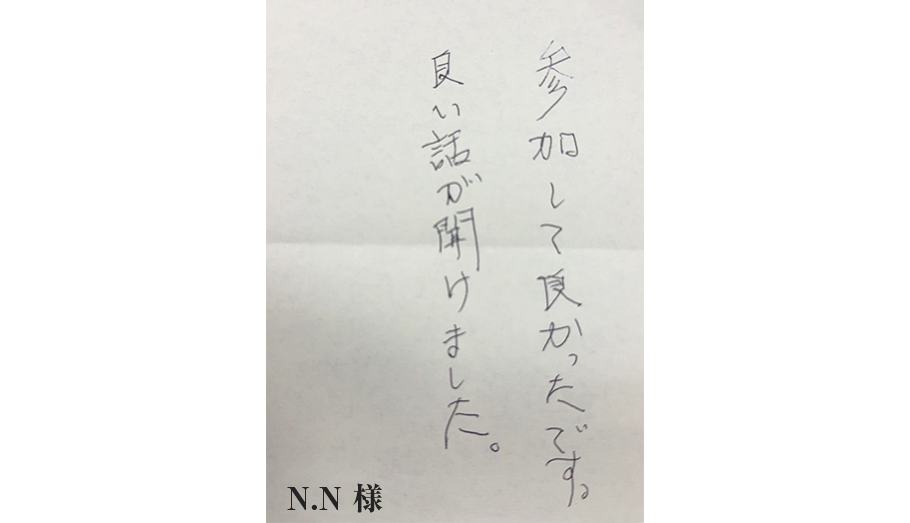 参加して良かったです。
良い話が聞けました。
N.N 様